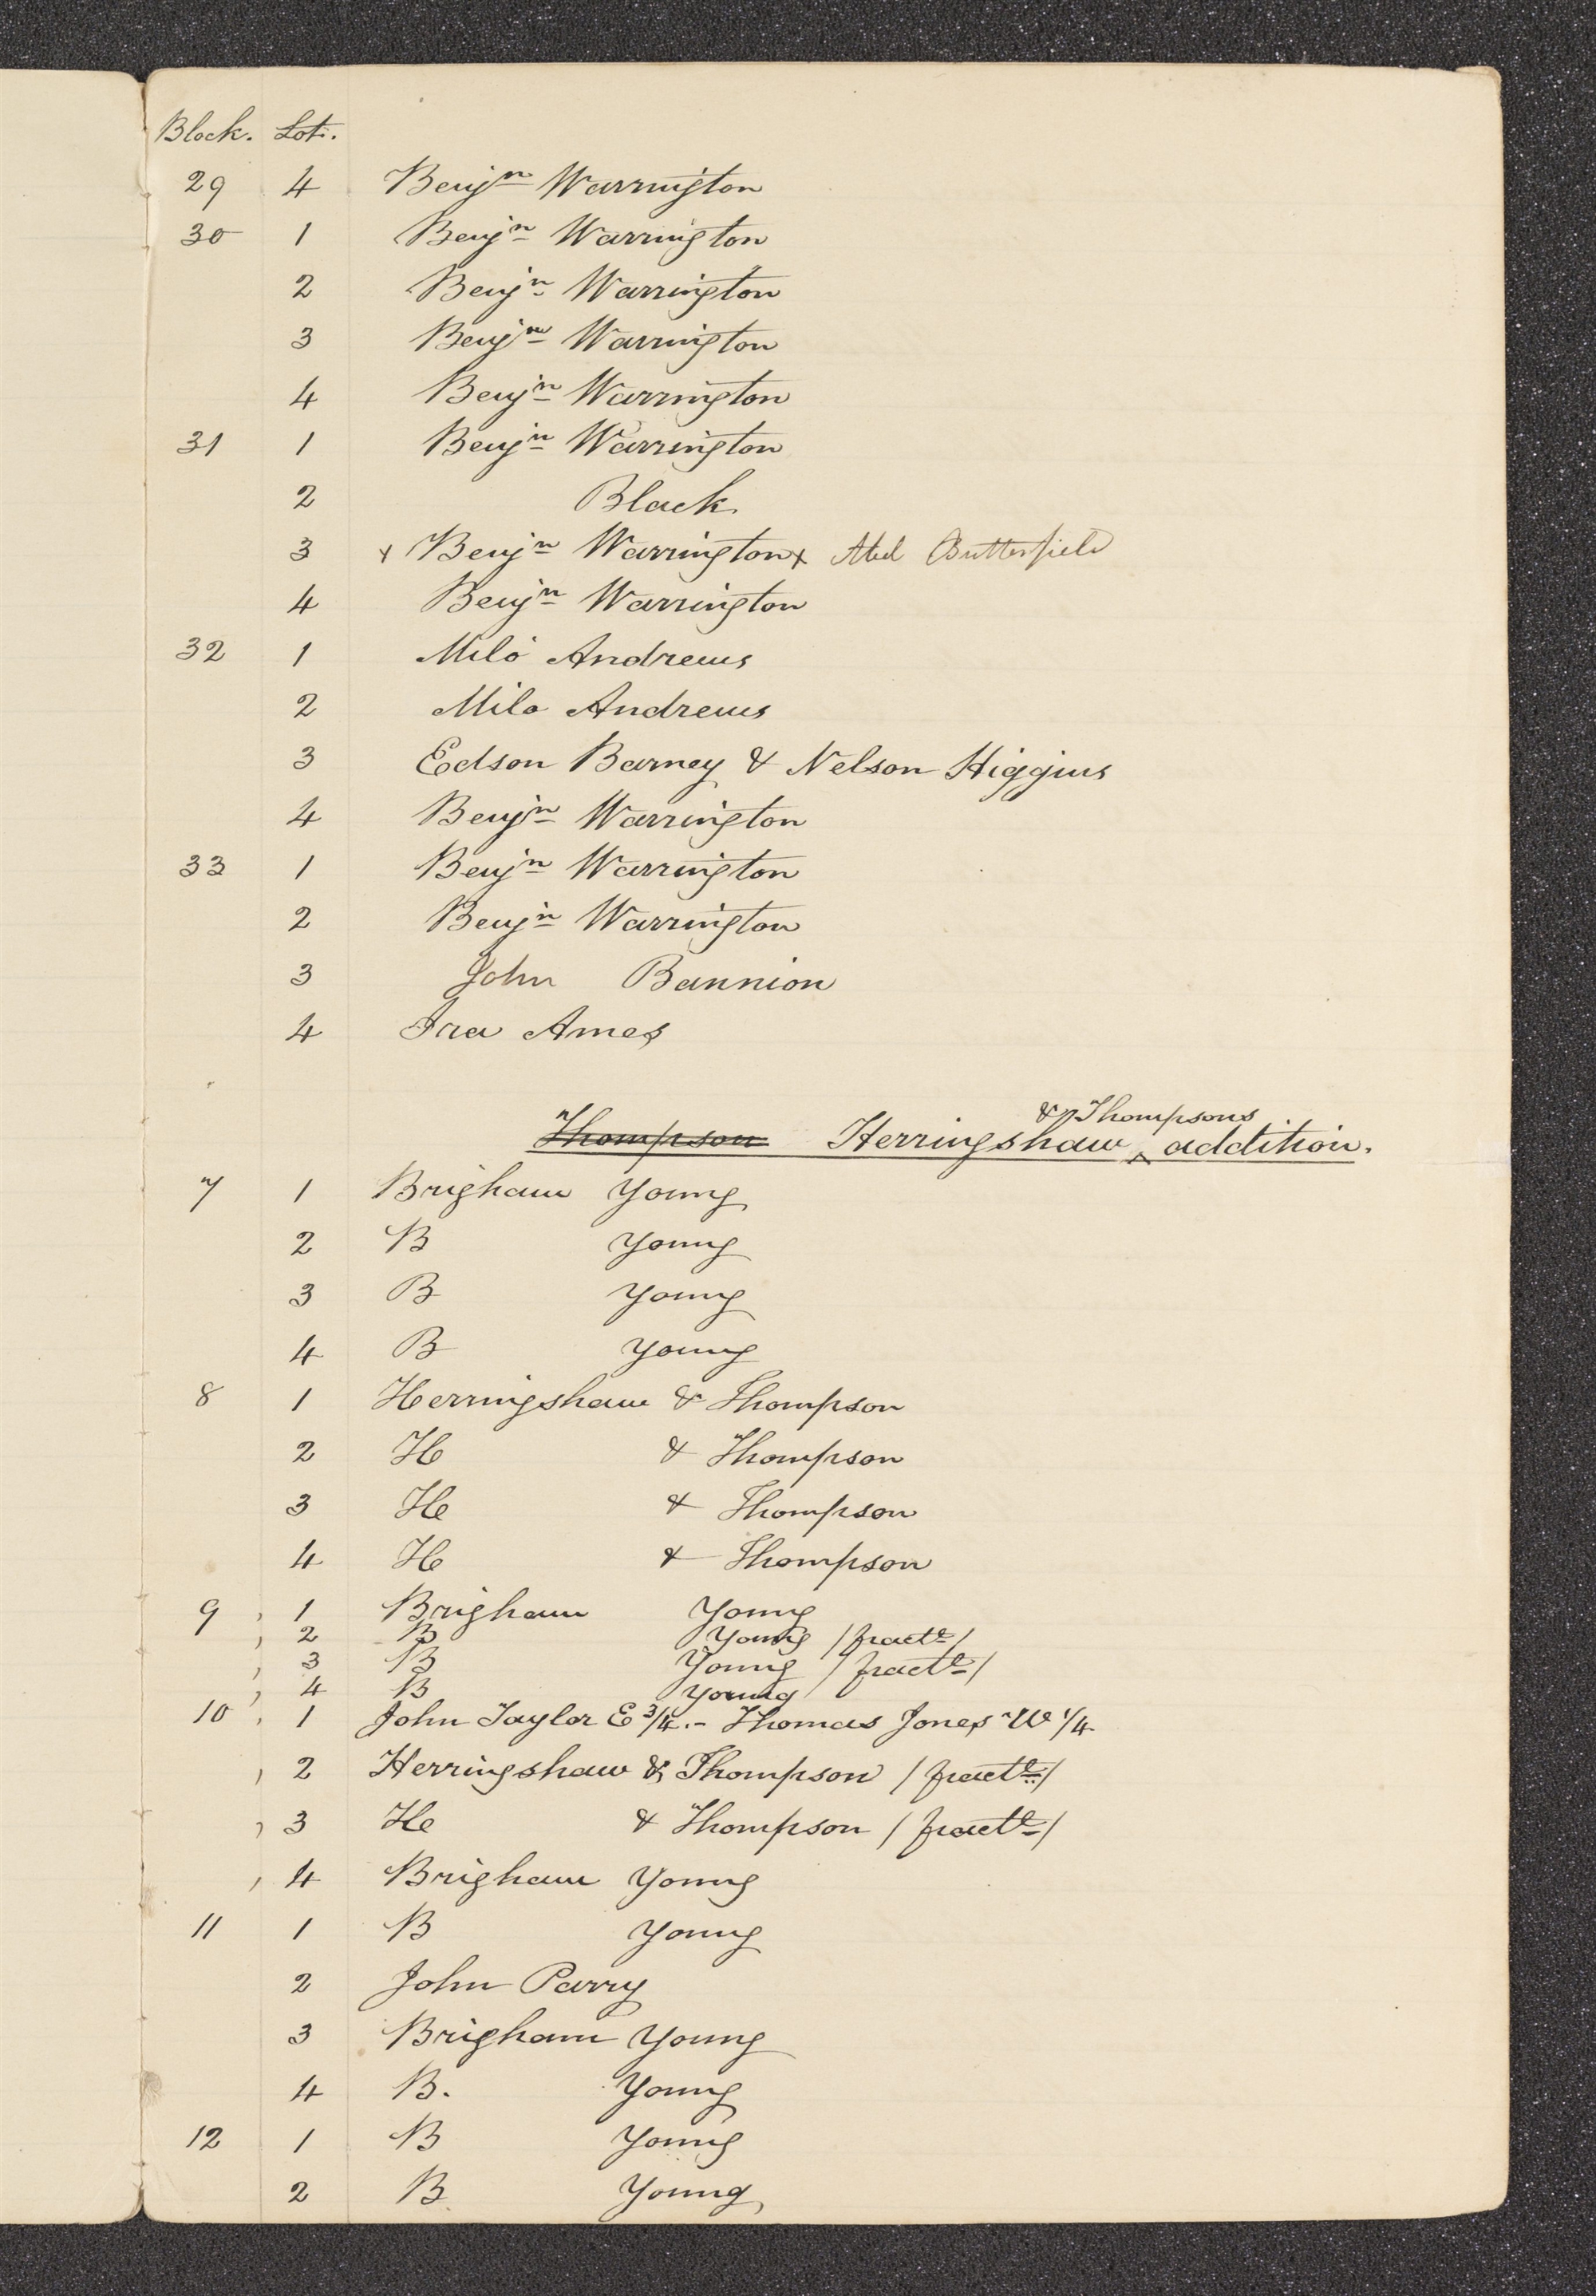 Block. Lot.
29 4 Benjn Warrington
30 1 Benjn Warrington
2 Benjn Warrington
3 Benjn Warrington
4 Benjn Warrington
31 1 Benjn Warrington
2 Black
3 x Benjn Warrington x Abel Butterfield
4 Benjn Warrington
32 1 Milo Andrews
2 Milo Andrews
3 Edson Barney & Nelson Higgins
4 Benjn Warrington
33 1 Benjn Warrington
2 Benjn Warrington
3 John Bannion
4 Ira Ames
& Thompsons
Thompson Herringshaw ^ addition.
7 1 Brigham Young
2 B Young
3 B Young
4 B Young
8 1 Herringshaw & Thompson
2 H & Thompson
3 H & Thompson
4 H & Thompson
9 1 Brigham Young
2 B Young /fractl/
3 B Young /fractl/
4 B Young
10 1 John Taylor E 3/4.- Thomas Jones W 1/4
2 Herringshaw & Thompson /fractl/
3 H & Thompson /fractl/
4 Brigham Young
11 1 B Young
2 John Parry
3 Brigham Young
4 B. Young
12 1 B Young
2 B Young